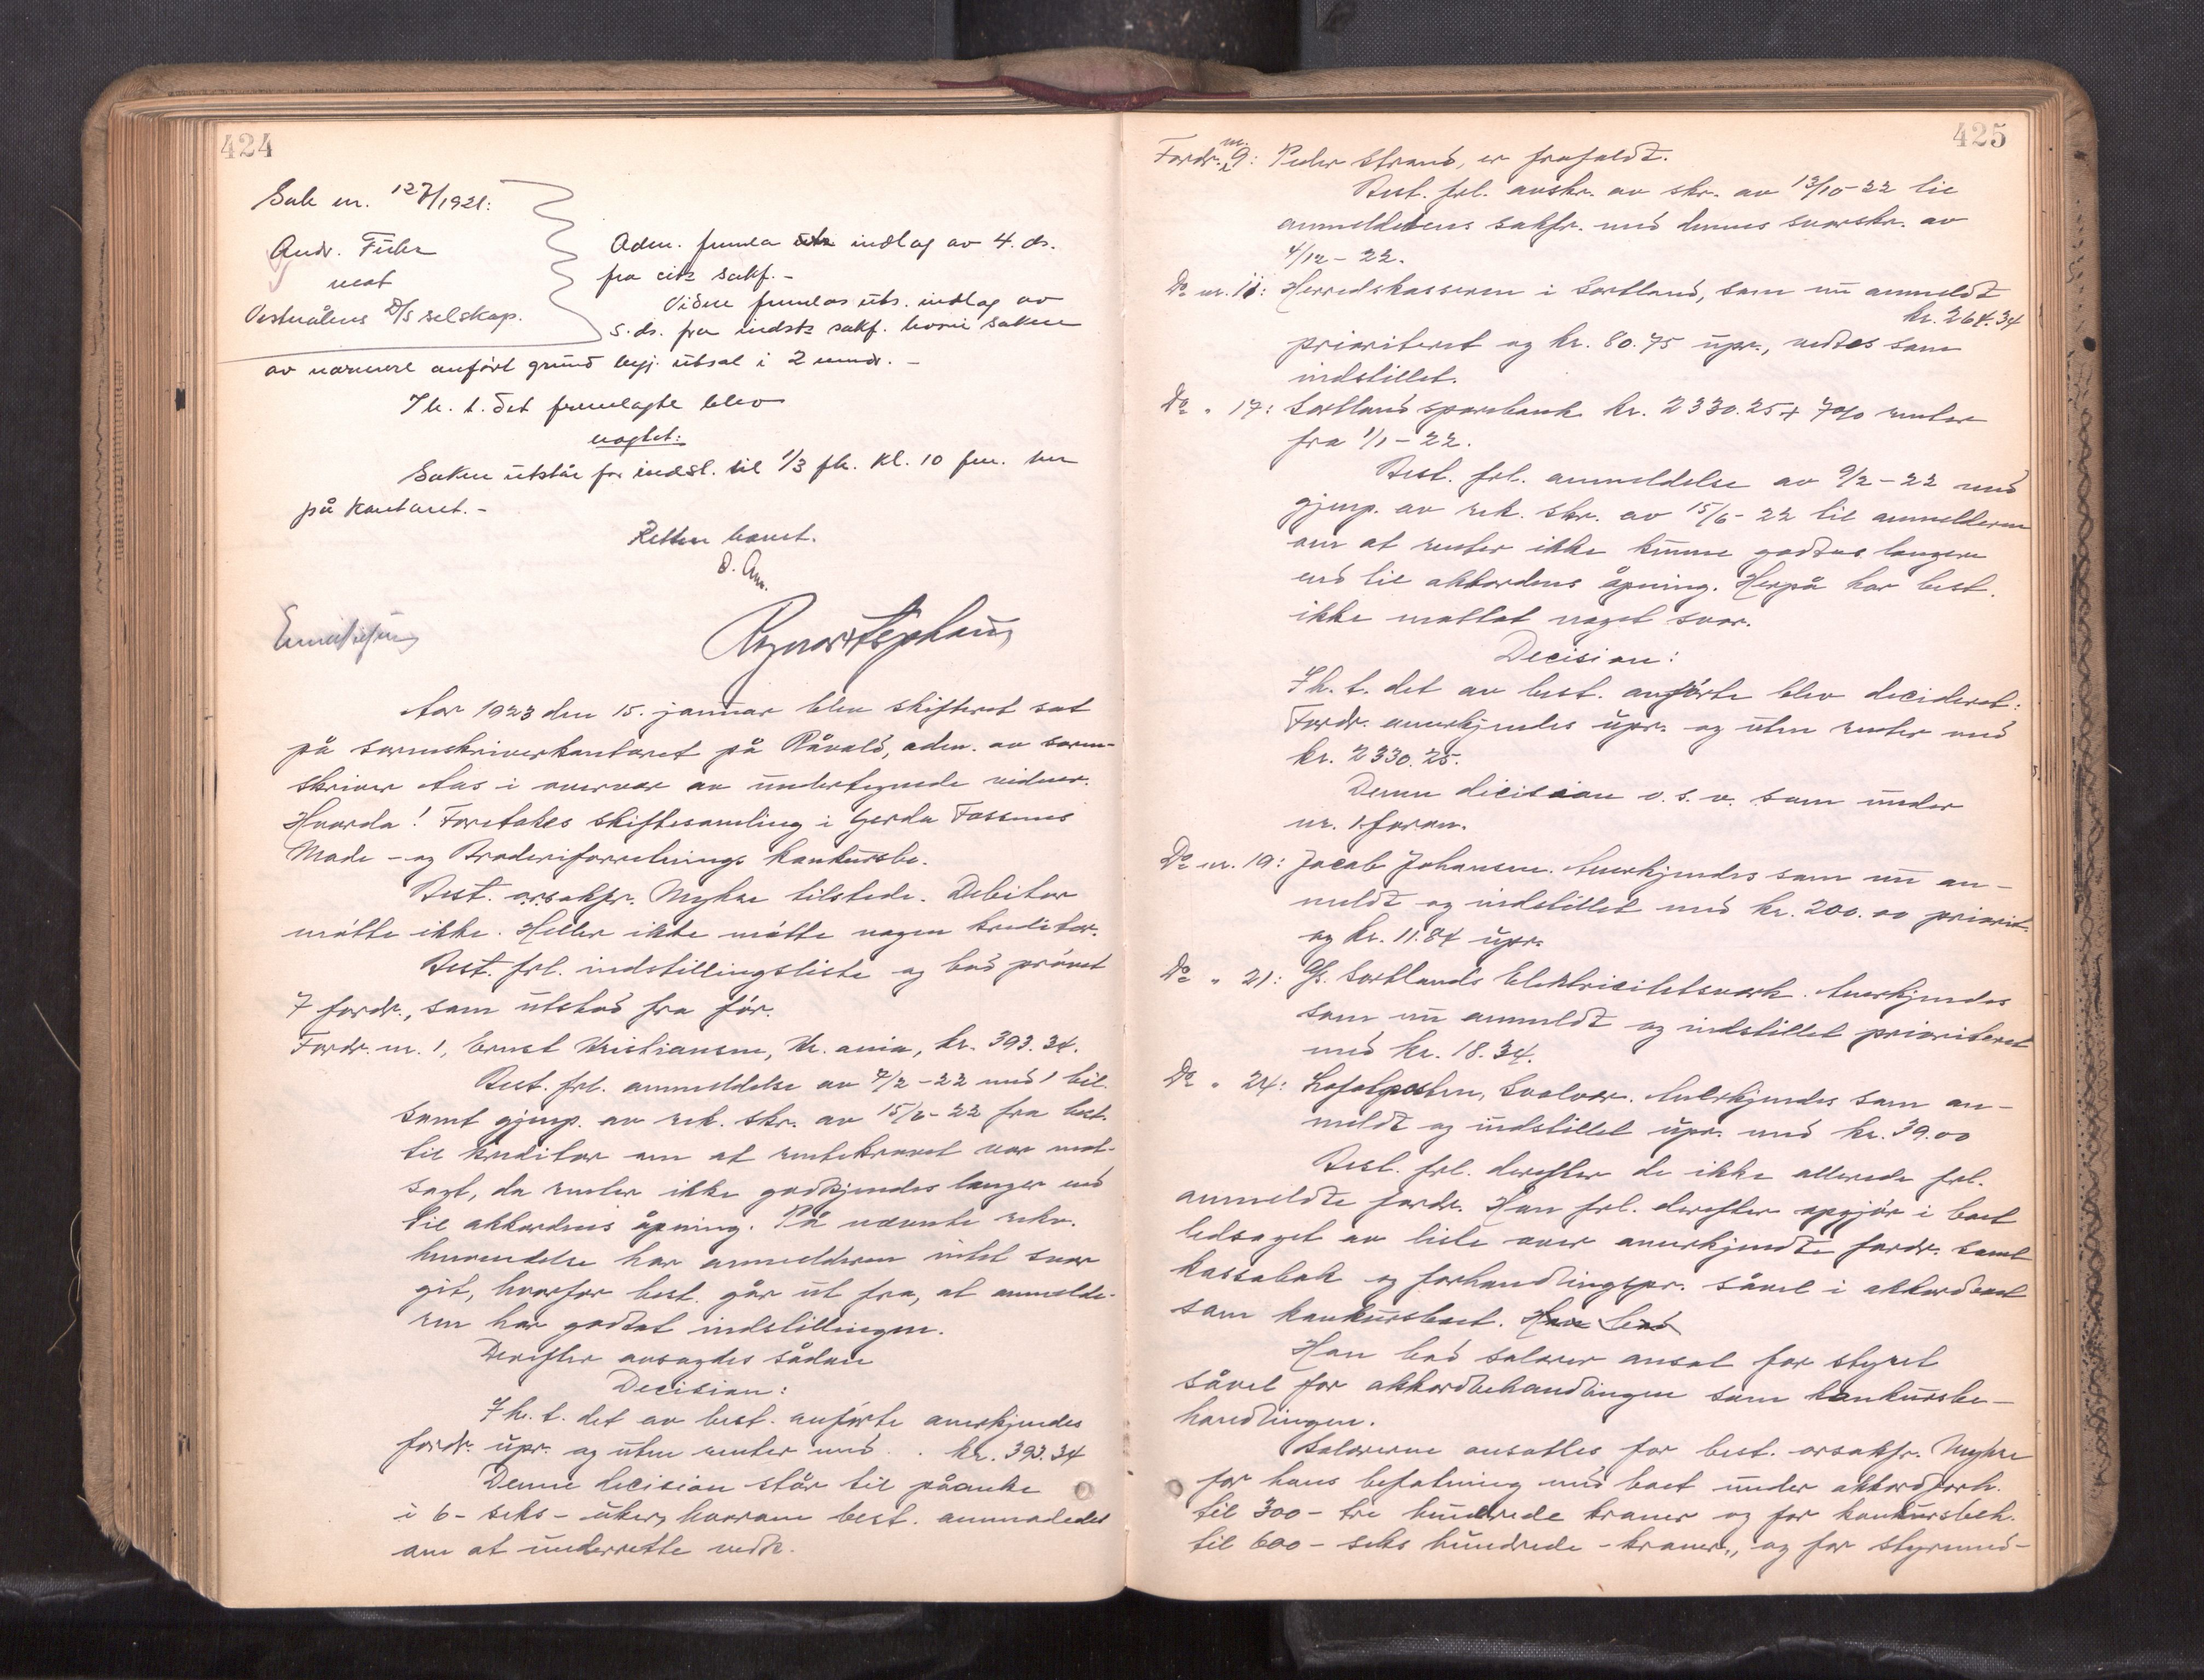 424
Sak nr. 127/1921:
Andr.
mot
Vesterålens D/S selskap.
Adm. fremla indlag av 4. ds.
fra cits sakf. -
Videre fremlas uts. indlag av
5. ds. fra indsts sakf. hvori saken
av nærmere anført grund begj. utsat i 2 mndr. -
I h. t. det fremlagte blev
vogtet:
Saken utstår for indst. til 1/3 fk. kl. 10 fm. her
på kontoret. -
Retten hævet.
Aar 1923 den 15. januar blev skifteret sat
på sorenskriverkontoret på Råvald, adm. av soren-
skriver Aas i overvær av undertegnede vidner.
Hvorda! Foretokes skiftesamling i Gerda Fossums
Mode - og Broderiforretnings konkursbo.
Best. orsakfr. Myhre tilstede. Debitor
møtte ikke. Heller ikke møtte nogen kreditor.
Best. frl. indstillingsliste og bad prøvet
7 fordr., som utstod fra før.
Fordr. nr. 1, Ernst Kristiansen, Kr.ania, kr. 393.34.
Best. frl. anmeldelse av 7/2-22 med 1 bil.
samt gjenp. av rek. skr. av 15/6-22 fra best.
til kreditor om at rentekravet var mot-
sagt, da renter ikke godkjendes længer end
til akkordens åpning. På nævnte rekv.
henvendelse har anmelderen intet svar
git, hvorfor best. går ut fra, at anmelde-
ren har godtat indstillingen.
Derefter avsagdes sådan
Decision:
I h. t. det av best. anførte anerkjendes
fordr. upr. og uten renter med . . kr. 393.34
Denne decision står til påanke
i 6 - seks - uker, hvorom best. anmodedes
om at underrette vedk.
425
Fordr. nr. 9: Peder Strand, er frafaldt.
Best. frl. avskr. av skr. av 13/10-22 til
anmelderens sakfr. med dennes svarskr. av
4/12-22.
Do nr. 11: Herredskassereren i Sortland, som nu anmeldt
kr. 264.34
prioriteret og kr. 80.75 upr., vedtas som
indstillet.
Do " 17: Sortland sparebank kr. 2330.25 + 7% renter
fra 1/1-22.
Best. frl. anmeldelse av 9/2-22 med
gjenp. av rek. skr. av 15/6-22 til anmelderen
om at renter ikke kunne godtas længere
end til akkordens åpning. Herpå har best.
ikke mottat noget svar.
Decision:
I h. t. det av best. anførte blev decideret:
Fordr. anerkjendes upr. og uten renter med
kr. 2330.25.
Denne decision o. s. v. som under
nr. 1 foran.
Do nr. 19: Jacob Johansen. Anerkjendes som nu an-
meldt og indstillet med kr. 200.00 priorit.
og kr. 11.84 upr.
Do " 21: A/S. Sortlands Elektricitetsverk. Anerkjendes
som nu anmeldt og indstillet prioriteret
med kr. 18.34.
Do " 24: Lofotposten, Svolvær. Anerkjendes som an-
meldt og indstillet upr. med kr. 39.00
Best. frl. derefter de ikke allerede frl.
anmeldte fordr. Han frl. derefter opgjør i boet
ledsaget av liste over anerkjendte fordr. samt
kassabok og forhandlingspr. såvel i akkordboet
som konkursboet. Han bad
Han bad salærer ansat for styret
såvel for akkordbehandlingen som konkursbe-
handlingen.
Salærerne ansattes for best. orsakfr. Myhre
for hans befatning med boet under akkordforh.
til 300 - tre hundrede kroner og for konkursbeh.
til 600 - seks hundrede - kroner, og for styremed-